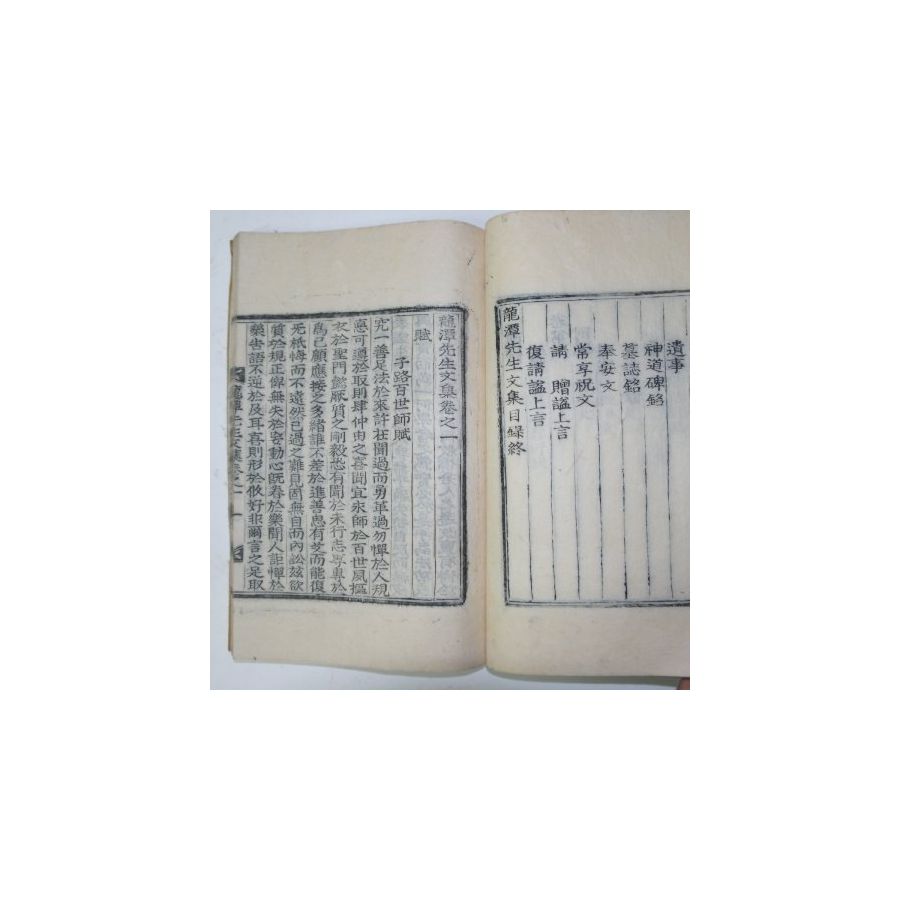 遺事
神道碑銘
墓誌銘
奉安文
常享祝文
請 贈諡上言
復請諡上言
龍潭先生文集目錄終
龍潭先生文集卷之一
賦
子路百世師賦
究一善足法於來許在聞過而勇革過勿憚於人規
惪可遵於取則肆仲由之喜聞宜永師於百世夙摳
衣於聖門懿厥質之剛毅恐有聞於未行志專專於
爲己顧應接之多緖誰不差於進善愚有芝而能復
旡祇悔而不遠然己過之難見固無自而內訟玆欲
質於規正俾無失於妄動心旣眷於樂聞人詎憚於
樂告語不逆於及耳喜則形於攸好非爾言之足取